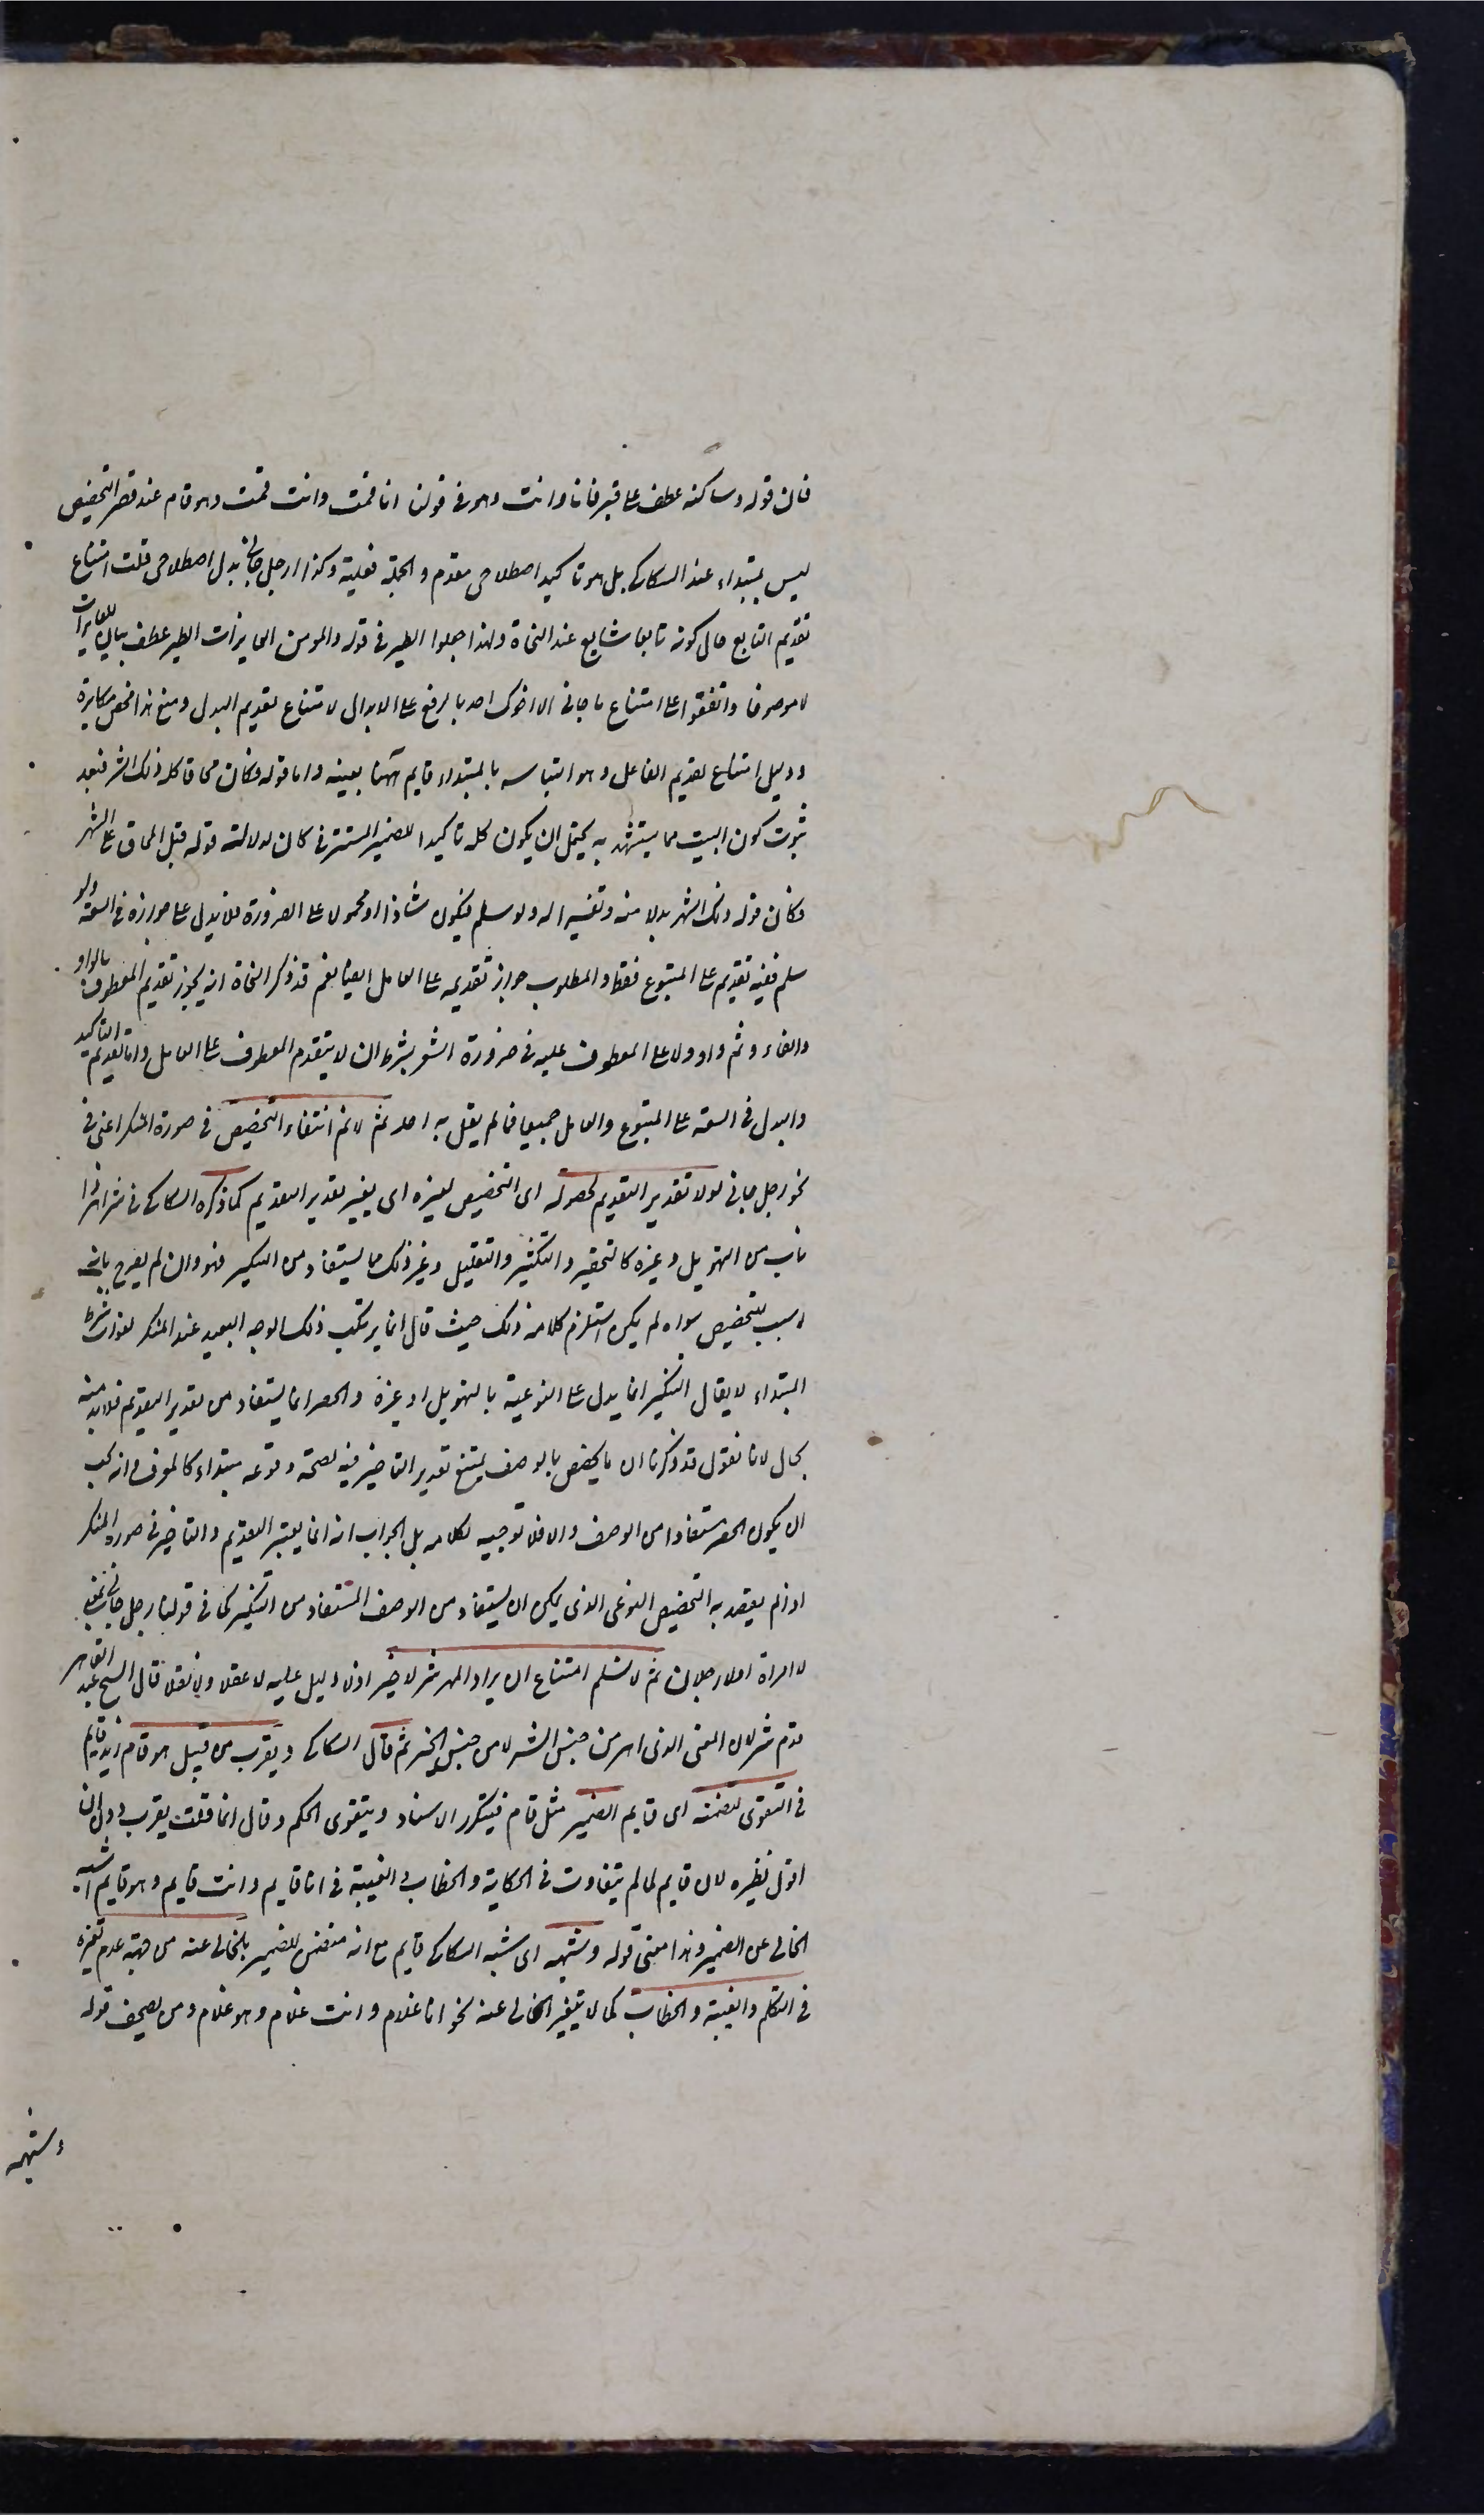 فان قوله وساكنه عطف على قبر فانا وانت وهو فى قولنا انا قمت وانت قمت وهو قام عند قصر التخصيص
ليس بمبتداء عند السكاكى بل هو تاكيد اصطلاحى مقدم والجملة فعلية وكذا رجل جانى بدل اصطلاحى قلت امتناع
تقديم التابع حال كونه تابعا شايع عند النحاة ولهذا جعلوا الطير فى قوله والمومن العايزات الطير عطف بيان للعايزات
لا موصوفا واتفقوا على امتناع ما جانى الا اخوك احد بالرفع على الابدال لامتناع تقديم البدل ومنع هذا محض مكابرة
ودليل امتناع تقديم الفاعل وهو التباسه بالمبتداء قايم ههنا بعينه واما قوله وكان محاقا كله ذلك الشهر فبعد
ثبوت كون البيت مما يستشهد به يحتمل ان يكون كله تاكيدا للضمير المستتر فى كان لدلالة قوله قبل المحاق على الشهر
فكان قوله ذلك الشهر بدلا منه وتفسيرا له ولو سلم فيكون شاذا او محمولا على الضرورة فلا يدل على جوازه فى السعة ولو
سلم ففيه تقديم على المتبوع فقط والمطلوب جواز تقديمه على العامل ايضا نعم قد ذكر النحاة انه يجوز تقديم المعطوف بالواو
والفاء وثم واو ولا على المعطوف عليه فى ضرورة الشعر بشرط ان لا يتقدم المعطوف على العامل واما تقديم التاكيد
والبدل فى السعة على المتبوع والعامل جميعا فمما لم يقل به احد ثم لا نم انتفاء التخصيص فى صورة المنكر اعنى فى
نحو رجل جانى لولا تقدير التقديم لحصوله اى التخصيص بغيره اى بغير تقدير التقديم كما ذكره السكاكى فى شر اهر ذا
ناب من التهويل وغيره كالتحقير والتكثير والتقليل وغير ذلك مما يستفاد من التنكير فهو وان لم يصرح بانه
لا سبب للتخصيص سواه لم يكن استلزم كلامه ذلك حيث قال انما يرتكب ذلك الوجه البعيد عند المنكر لفوات شرط
المبتداء لا يقال التنكير انما يدل على النوعية بالتهويل او غيره والحصر انما يستفاد من تقدير التقديم فلا بد منه
بحال لانا نقول قد ذكرنا ان ما يخصص بالوصف يمتنع تقدير التاخير فيه لصحة وقوعه مبتداء كالمعرف وانه يجب
ان يكون الحصر مستفادا من الوصف والا فلا توجيه لكلامه بل الجواب انه انما يعتبر التقديم والتاخير فى صورة المنكر
اذا لم يقصد به التخصيص النوعى الذى يمكن ان يستفاد من الوصف المستفاد من التنكير كما فى قولنا رجل جانى بمعنى
لا امراة او لا رجلان ثم لا نسلم امتناع ان يراد المهر شر لا خير اذ لا دليل عليه لا عقلا ولا نقلا قال الشيخ عبد القاهر
قدم شر لان المعنى الذى اهر من جنس الشر لا من جنس الخير ثم قال السكاكى ويقرب من قبيل هو قام زيد قايم
فى التقوى لتضمنه اى قايم الضمير مثل قام فيتكرر الاسناد ويتقوى الحكم وقال انما قلت يقرب دون ان
اقول نظيره لان قايم لما لم يتفاوت فى الحكاية والخطاب والغيبة فى انا قايم وانت قايم وهو قايم اشبه
الخالى عن الضمير وهذا معنى قوله وشبهه اى شبه السكاكى قايم مع انه متضمن للضمير بالخالى عنه من جهة عدم تغيره
فى التكلم والغيبة والخطاب كما لا يتغير الخالى عنه نحو انا غلام وانت غلام وهو غلام ومن تصحيف قوله
وشبهه